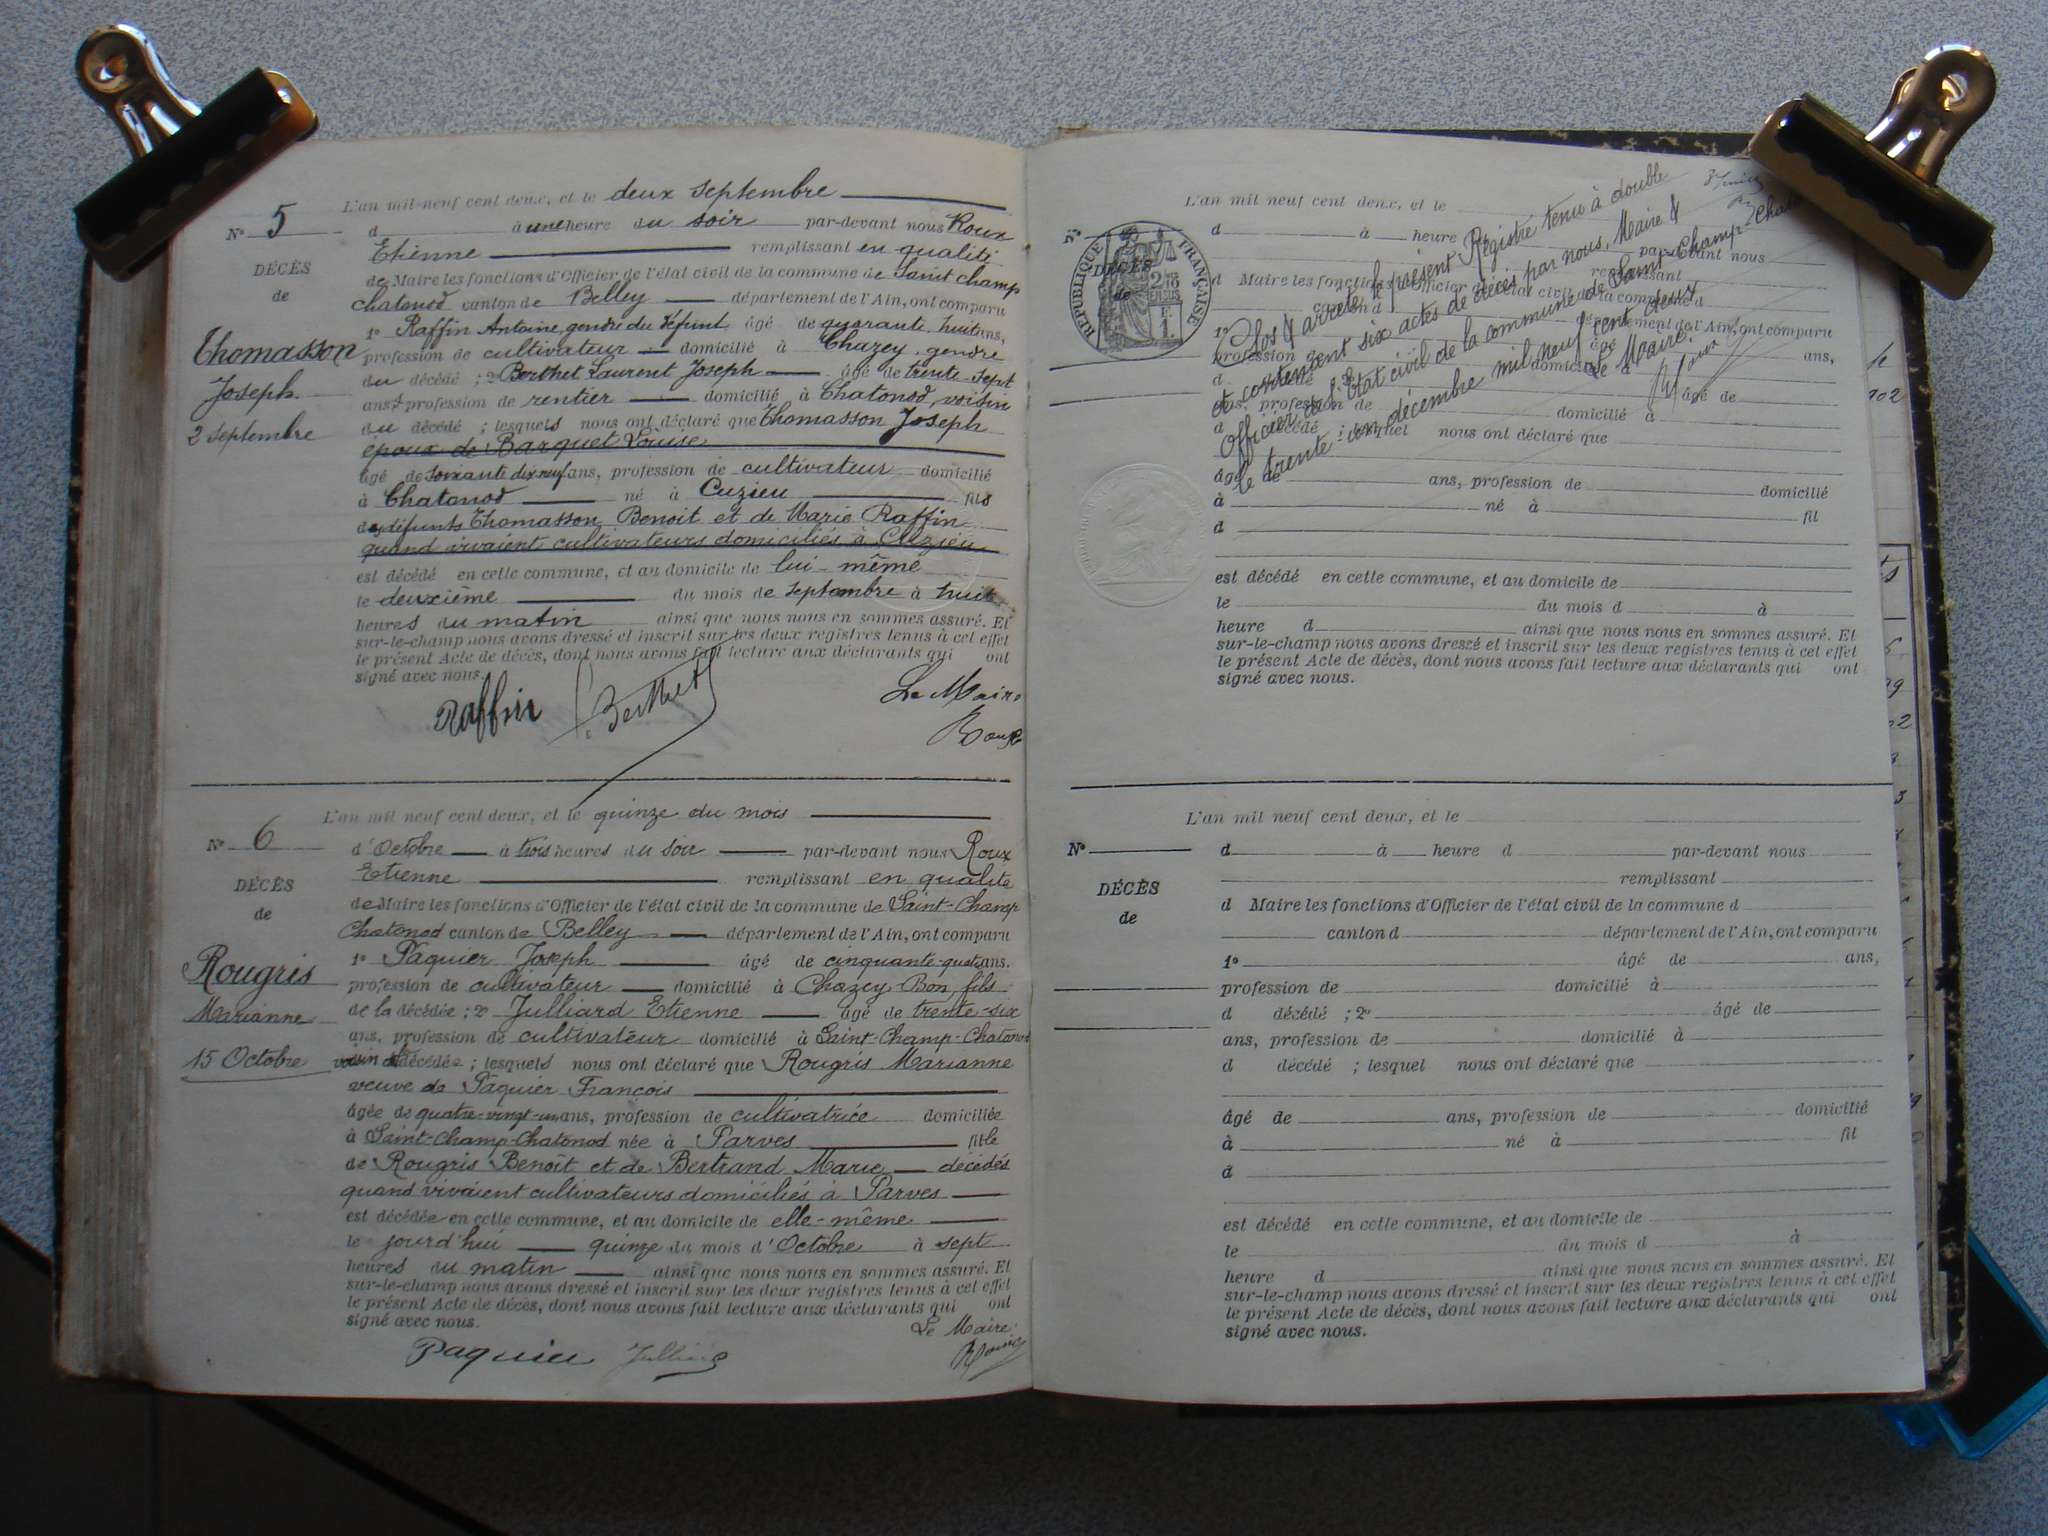 L'an mil neuf cent deux, et le deux septembre
N° 5
d à une heure du soir par-devant nous Roux
Etienne remplissant en qualité
DÉCÈS
de Maire les fonctions d'Officier de l'état civil de la commune de Saint champ
de
chatonod canton de Belley département de l'Ain, ont comparu
1° Raffin Antoine, gendre du défunt âgé de quarante-huit ans,
Thomasson
profession de cultivateur domicilié à Chazey, gendre
Joseph
du décédé ; 2° Berthet Laurent Joseph âgé de trente-sept
ans, profession de rentier domicilié à Chatonod, voisin
2 septembre
du décédé ; lesquels nous ont déclaré que Thomasson Joseph
époux de Barquet Louise
âgé de soixante dix neuf ans, profession de cultivateur domicilié
à Chatonod né à Cuzieu fils
des défunts Thomasson Benoit et de Marie Raffin
quand vivaient cultivateurs domiciliés à Cuzieu
est décédé en cette commune, et au domicile de lui-même
le deuxième du mois de septembre à huit
heures du matin ainsi que nous nous en sommes assuré. Et
sur-le-champ nous avons dressé et inscrit sur les deux registres tenus à cet effet
le présent Acte de décès, dont nous avons fait lecture aux déclarants qui ont
signé avec nous.
Raffin Berthet Le Maire
Roux
L'an mil neuf cent deux, et le quinze du mois
N° 6
d'Octobre à trois heures du soir par-devant nous Roux
Etienne remplissant en qualité
DÉCÈS
de Maire les fonctions d'Officier de l'état civil de la commune de Saint-Champ
de
Chatonod canton de Belley département de l'Ain, ont comparu
1° Paquier Joseph âgé de cinquante-quatre ans.
Rougris
profession de cultivateur domicilié à Chazey Bon, fils
Marianne
de la décédée ; 2° Julliard Etienne âgé de trente-six
ans, profession de cultivateur domicilié à Saint-Champ-Chatonod
15 Octobre
voisin décédée ; lesquels nous ont déclaré que Rougris Marianne
veuve de Paquier François
âgée de quatre-vingt-un ans, profession de cultivatrice domiciliée
à Saint-Champ-Chatonod née à Parves fille
de Rougris Benoît et de Bertrand Marie décédés
quand vivaient cultivateurs domiciliés à Parves
est décédée en cette commune, et au domicile de elle-même
le jourd'hui quinze du mois d'Octobre à sept
heures du matin ainsi que nous nous en sommes assuré. Et
sur-le-champ nous avons dressé et inscrit sur les deux registres tenus à cet effet
le présent Acte de décès, dont nous avons fait lecture aux déclarants qui ont
signé avec nous.
Le Maire
Paquier Julliard Roux
L'an mil neuf cent deux, et le
N°
d à heure par-devant nous
remplissant
DÉCÈS
de
RÉPUBLIQUE FRANÇAISE
d Maire les fonctions d'Officier de l'état civil de la commune d
canton d département de l'Ain, ont comparu
1° âgé ans,
profession de domicilié à
d décédé ; 2° âgé de
ans, profession de domicilié à
d décédé ; lesquel nous ont déclaré que
Clos & arrêté le présent Registre tenu à double
et contenant six actes de décès par nous, Maire &
Officier de l'état civil de la commune de Saint-Champ-Chatonod
le trente-un décembre mil neuf cent deux
Le Maire
Roux
âgé de ans, profession de domicilié
à né à fil
d
est décédé en cette commune, et au domicile de
le du mois d à
heure d ainsi que nous nous en sommes assuré. Et
sur-le-champ nous avons dressé et inscrit sur les deux registres tenus à cet effet
le présent Acte de décès, dont nous avons fait lecture aux déclarants qui ont
signé avec nous.
L'an mil neuf cent deux, et le
N°
d à heure d par-devant nous
remplissant
DÉCÈS
d Maire les fonctions d'Officier de l'état civil de la commune d
de
canton d département de l'Ain, ont comparu
1° âgé de ans,
profession de domicilié à
d décédé ; 2° âgé de
ans, profession de domicilié à
d décédé ; lesquel nous ont déclaré que
âgé de ans, profession de domicilié
à né à fil
d
est décédé en cette commune, et au domicile de
le du mois d à
heure d ainsi que nous nous en sommes assuré. Et
sur-le-champ nous avons dressé et inscrit sur les deux registres tenus à cet effet
le présent Acte de décès, dont nous avons fait lecture aux déclarants qui ont
signé avec nous.